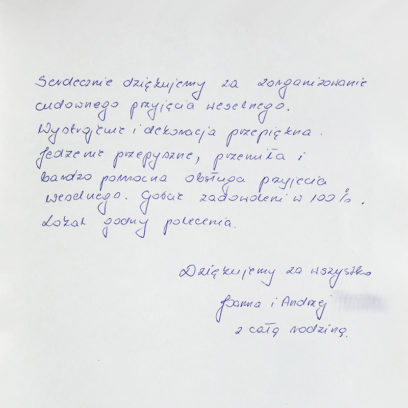 Serdecznie dziękujemy za zorganizowanie
cudownego przyjęcia weselnego.
Wystrojenie i dekoracja przepiękna.
Jedzenie przepyszne, przemiła i
bardzo pomocna obsługa przyjęcia
weselnego. Goście zadowoleni w 100%.
Lokal godny polecenia.
Dziękujemy za wszystko
Joanna i Andrzej
z całą rodziną.